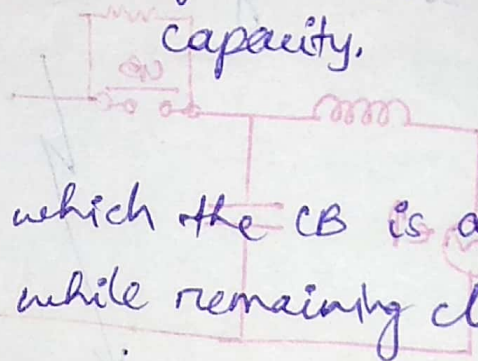 capacity.
which the CB is a
while remaining cl